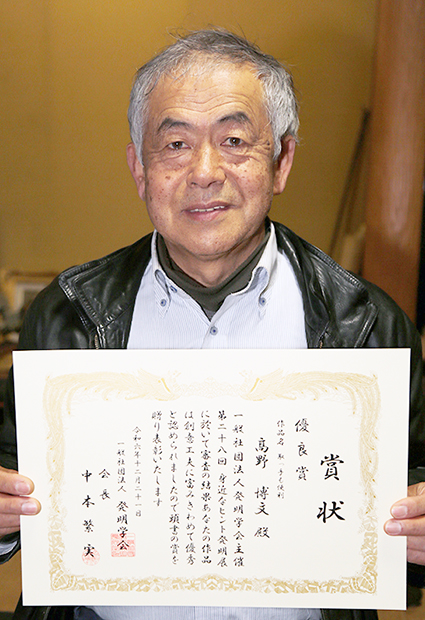 賞状
優良賞
作品名 取っ手も便利
髙野 博文 殿
一般社団法人発明学会主催
第二十八回 身近なヒント発明展
に於いて審査の結果あなたの作品
は創意工夫に富みきわめて優秀
と認められましたので頭書の賞を
贈り表彰いたします
令和六年十二月二十一日
一般社団法人 発明学会
会長
中本 繁実